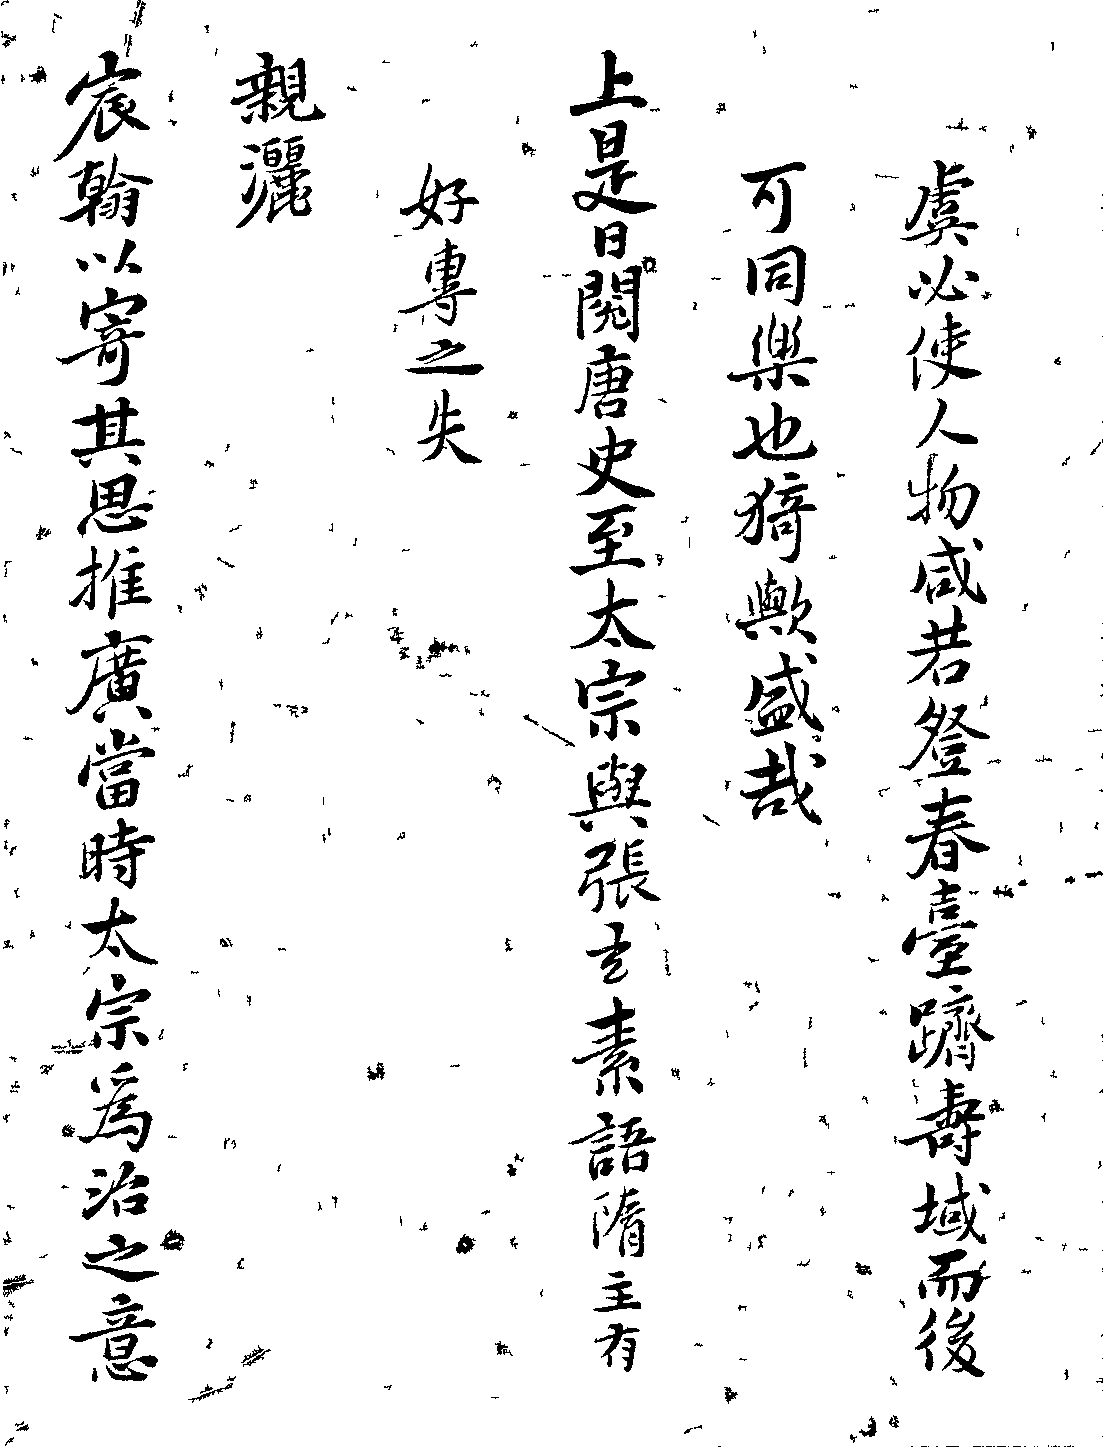 虞必使人物咸若登春臺躋壽域而後
可同樂也猗歟盛哉
上是日閱唐史至太宗與張玄素語隋主有
好專之失
親灑
宸翰以寄其思推廣當時太宗爲治之意